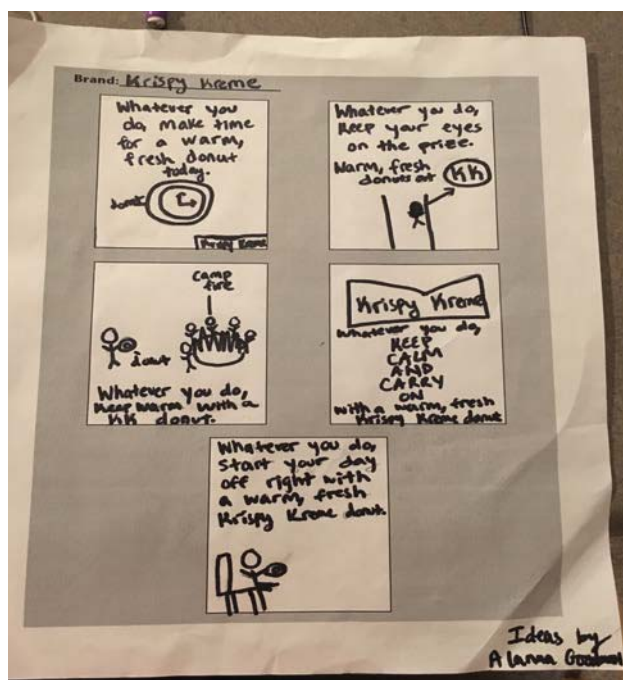 Brand: Krispy Kreme
Whatever you
do, make time
for a warm,
fresh donut
today.
donut
Krispy Kreme
Whatever you do,
keep your eyes
on the prize.
Warm, fresh
donuts at
KK
camp
fire
donut
Whatever you do,
keep warm with a
KK donut.
Krispy Kreme
Whatever you do,
KEEP
CALM
AND
CARRY
ON
with a warm, fresh
Krispy Kreme donut
Whatever you do,
start your day
off right with
a warm, fresh
Krispy Kreme donut.
Ideas by
Alanna